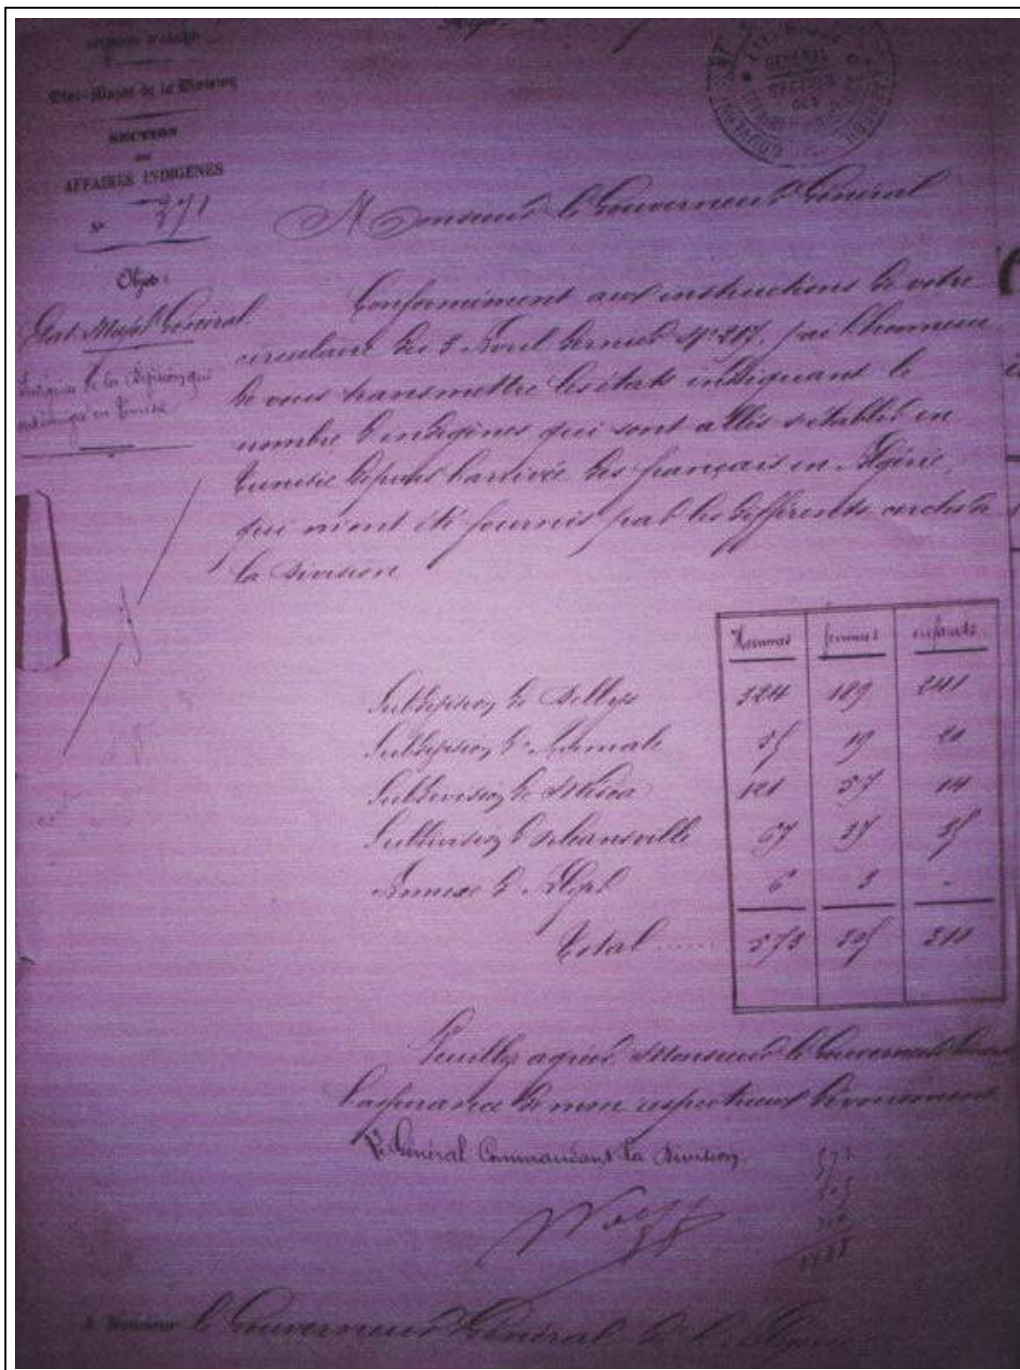 DIVISION D'ALGER
Etat-Major de la Division
SECTION
des
AFFAIRES INDIGÈNES
N° 291
Objet:
Etat-Major Général.
Indigènes de la Division qui
ont émigré en Tunisie
GÉNÉRAL
A Monsieur le Gouverneur Général
Conformément aux instructions de votre
circulaire du 5 Avril dernier N° 217, j'ai l'honneur
de vous transmettre les états indiquant le
nombre d'indigènes qui sont allés s'établir en
Tunisie depuis l'arrivée des français en Algérie,
qui m'ont été fournis par les différents cercles de
la Division
Hommes femmes enfants
Subdivision de Dellys 324 189 241
Subdivision d'Aumale 55 19 20
Subdivision de Médéa 121 57 14
Subdivision d'Orléansville 67 37 35
Annexe d'Alger 6 3 -
Total ...... 573 305 310
Veuillez agréer, Monsieur le Gouverneur Général
l'assurance de mon respectueux dévouement.
Le Général Commandant la Division
573
305
310
1188
A Monsieur le Gouverneur Général de l'Algérie